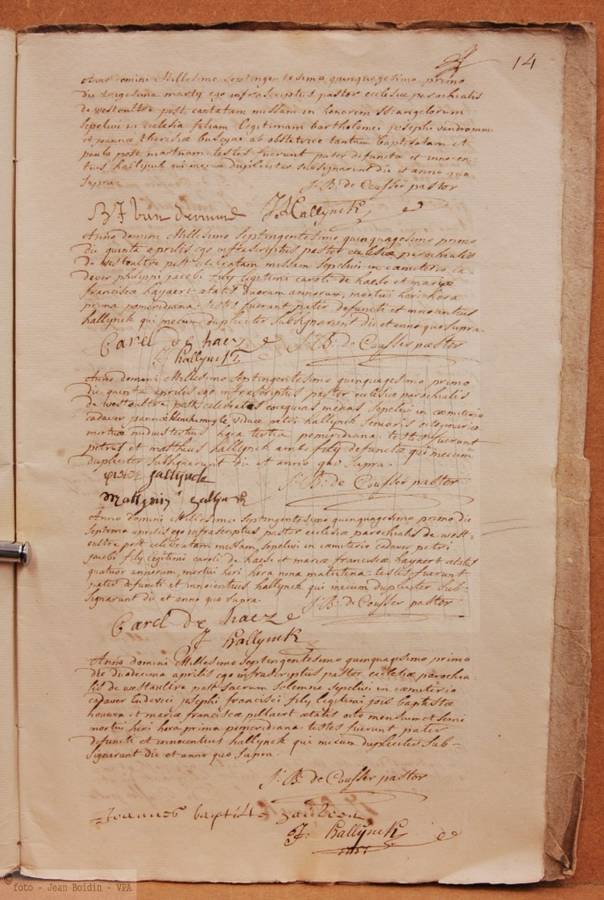 14
Anno domini Millesimo septingentesimo quinquagesimo primo
die vigesima martij ego infrascriptus pastor ecclesiæ parochialis
de westoultre post cantatam missam in honorem SS angelorum
sepelivi in ecclesia filiam legitimam bartholomei josephi
et joannæ theresiæ ab obstetrice tantum baptisatam et
paulo post mortuam testes fuerunt pater defunctæ et innocen-
tius hallynck qui mecum dupliciter subsignarunt die et anno quo
supra
J. B. de Cousser pastor
J. Hallynck
Anno domini Millesimo septingentesimo quinquagesimo primo
die quinta aprilis ego infrascriptus pastor ecclesiæ parochialis
de westoultre post celebratam missam sepelivi in cæmeterio ca-
daver philippi jacobi filij legitimi caroli de haese et mariæ
franciscæ hayaert ætatis duorum annorum, mortui heri hora
prima pomeridiana testes fuerunt pater defuncti et innocentius
hallynck qui mecum dupliciter subsignarunt die et anno quo supra.
Carel de haeze J. B. de Cousser pastor
J. hallynck
Anno domini Millesimo septingentesimo quinquagesimo primo
die quinta aprilis ego infrascriptus pastor ecclesiæ parochialis
de westoultre post celebratas exequias medias sepelivi in cæmeterio
cadaver viduæ petri hallynck
tertia pomeridiana testes fuerunt
petrus et mattheus hallynck ambo filij defunctæ qui mecum
dupliciter subsignarunt die et anno quo supra.
J. B. de Cousser pastor
Anno domini Millesimo septingentesimo quinquagesimo primo die
septima aprilis ego infrascriptus pastor ecclesiæ parochialis de west-
oultre post celebratam missam sepelivi in cæmeterio cadaver petri
jacobi filij legitimi caroli de haese et mariæ franciscæ hayaert ætatis
quatuor annorum, mortui heri hora nona matutina testes fuerunt
pater defuncti et innocentius hallynck qui mecum dupliciter sub-
signarunt die et anno quo supra.
J. B. de Cousser pastor
Carel de haeze
J. hallynck
Anno domini Millesimo septingentesimo quinquagesimo primo
die duodecima aprilis ego infrascriptus pastor ecclesiæ parochia-
lis de westoultre post sacrum solemne sepelivi in cæmeterio
cadaver ludovici josephi francisci filij legitimi jois baptistæ
et mariæ franciscæ pillaert ætatis octo mensium et semi
mortui heri hora prima pomeridiana testes fuerunt pater
defuncti et innocentius hallynck qui mecum dupliciter sub-
signarunt die et anno quo supra.
J. B. de Cousser pastor
Joannes baptiste
J. hallynck
©foto - Jean Boidin - VPA